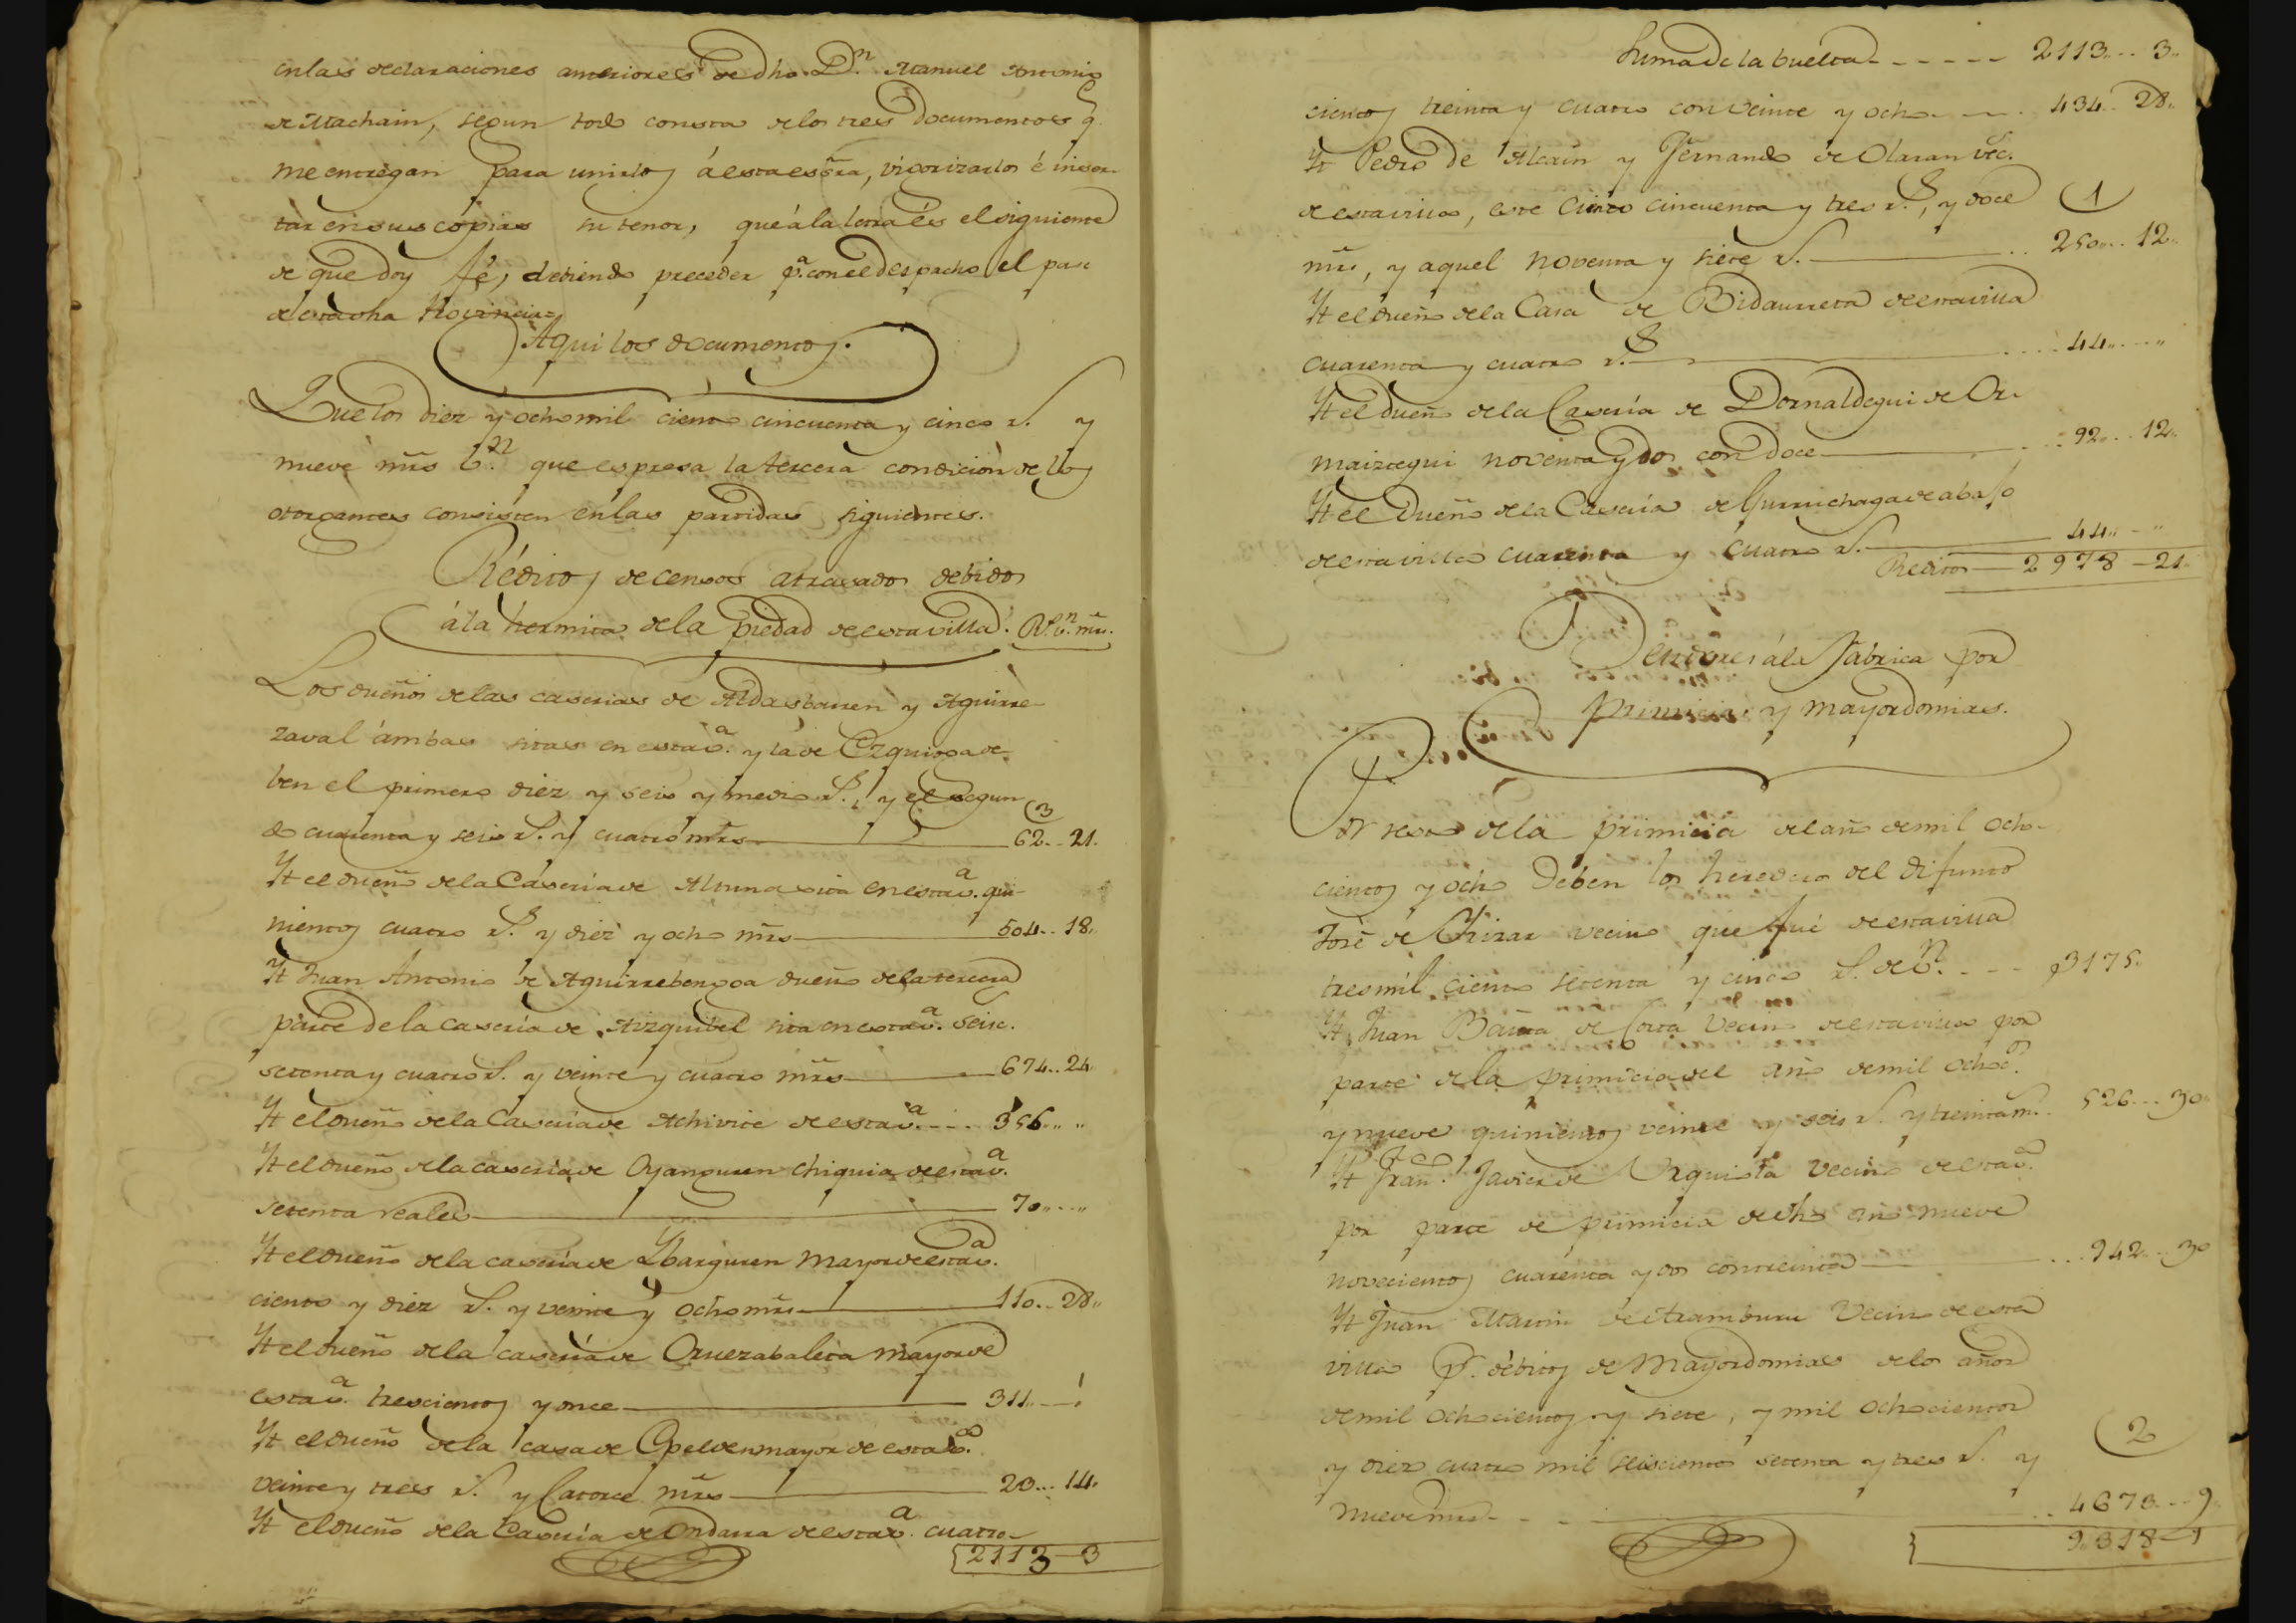 en las declaraciones anteriores de dho. Dn. Manuel Antonio
de Machain, segun todo consta de los tres documentos q.
me entregan para unirlos á esta esßra, vigorizarlos é inser-
tar en sus copias su tenor, que á la letra és el siguiente
de que doy fé, debiendo preceder pa. con el despacho el pase
de esta dha Provincia=
Aqui los documentos.
Que los diez y ocho mil ciento cincuenta y cinco rs. y
nueve mrs vn. que espresa la tercera condicion de los
otorgantes consisten en las partidas siguientes.
Réditos de censos atrasados debidos
á la hermita de la piedad de esta villa. Rs. vn. mrs.
Los dueños de las caserias de Aldasbarren y Aguirre-
zaval ámbas sitas en esta va. y la de Ezquioga de-
ben el primero diez y seis y medio rs., y el segun
do cuarenta y seis rs. y cuatro mrs 62.. 21.
3
Yt el dueño de la Caseria de Altuna sita en esta va. qui-
nientos cuatro rs. y diez y ocho mrs 504.. 18.
Yt Juan Antonio de Aguirrebengoa dueño de la tercera
parte de la caseria de Aizquibel sita en esta va. seisc.
setenta y cuatro rs. y veinte y cuatro mrs 674.. 24
Yt el dueño de la Caseria de Achivite de esta va. 356.. ..
Yt el dueño de la caseria de Oyanguren chiquia de esta va.
setenta reales 70.. ..
Yt el dueño de la caseria de Ybarguren mayor de esta va.
ciento y diez rs. y veinte y ocho mrs 110.. 28..
Yt el dueño de la caseria de Oruezabaleta mayor de
esta va. trescientos y once 311..
Yt el dueño de la casa de Opelden mayor de esta va.
veinte y tres rs. y Catorce mrs 23... 14.
Yt el dueño de la Caseria de Ondarra de esta va. cuatro-
2113-3
Suma de la buelta 2113.. 3..
cientos treinta y cuatro con veinte y ocho 434.. 28..
Yt Pedro de Alcain y Fernando de Olaran vec.s
de esta villa, este Ciento cincuenta y tres rs., y doce
1
mrs, y aquel noventa y siete rs. 250... 12.
Yt el dueño de la Casa de Bidaurreta de esta villa
cuarenta y cuatro rs. 44.. ..
Yt el dueño de la Caseria de Dornaldegui de Or-
maiztegui noventa y dos con doce 92.. 12.
Yt el Dueño de la Caseria de Gurruchaga de abajo
de esta villa cuarenta y cuatro rs. 44.. ..
Reditos 2978-21.
Deudores á la Fabrica por
primicias y mayordomias.
Por resto de la primicia del año de mil ocho-
cientos y ocho Deben los herederos del difunto
José de Irizar vecino que fué de esta villa
tres mil ciento setenta y cinco rs. de vn. 3175.
Yt Juan Bauta de Corta Vecino de esta villa por
parte de la primicia del año de mil ochocs.
y nueve quinientos veinte y seis rs. y treinta m. 526... 30
Yt Franco. Javier de Urquiola Vecino de esta va.
por parte de primicia de dho año nueve
novecientos cuarenta y dos con treinta 942.. 30
Yt Juan Martin de Aramburu Vecino de esta
villa pr. débitos de Mayordomias de los años
de mil ochocientos y siete, y mil ochocientos
2
y diez cuatro mil seiscientos setenta y tres rs. y
nueve mrs 4673... 9
9.318-1